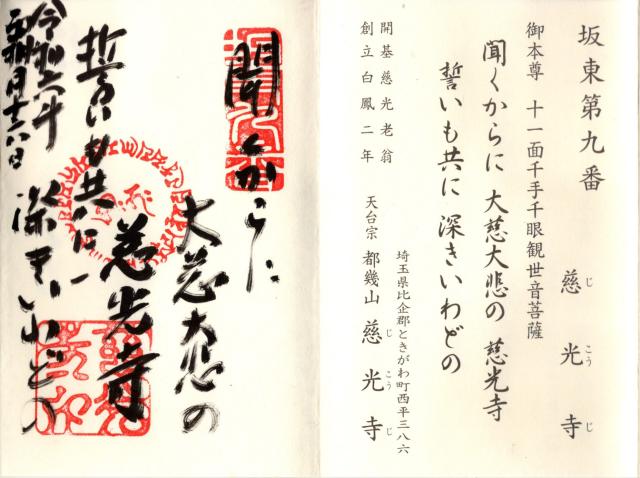 坂東第九番
慈光寺
じこうじ
御本尊 十一面千手千眼観世音菩薩
聞くからに 大慈大悲の 慈光寺
誓いも共に 深きいわどの
開基慈光老翁
創立白鳳二年
埼玉県比企郡ときがわ町西平三八六
天台宗 都幾山 慈光寺
じこうじ
聞くからに
大慈大悲の
慈光寺
誓いも共に
深きいわどの
令和六年